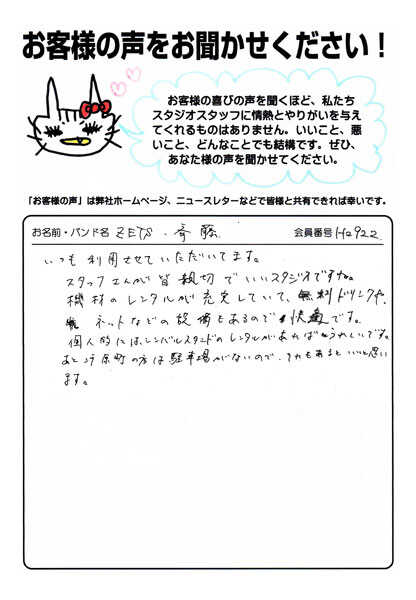 お客様の声をお聞かせください！
お客様の喜びの声を聞くほど、私たち
スタジオスタッフに情熱とやりがいを与え
てくれるものはありません。いいこと、悪
いこと、どんなことでも結構です。ぜひ、
あなた様の声を聞かせてください。
「お客様の声」は弊社ホームページ、ニュースレターなどで皆様と共有できれば幸いです。
お名前・バンド名 ZETS・斉藤 会員番号 H2922
いつも利用させていただいてます。
スタッフさんが皆親切でいいスタジオですね。
機材のレンタルが充実していて、無料ドリンクや、
ネットなどの設備もあるので快適です。
個人的には、シンバルスタンドのレンタルがあればうれしいです。
あと 原町の方は駐車場がないので、それもあるといいと思い
ます。